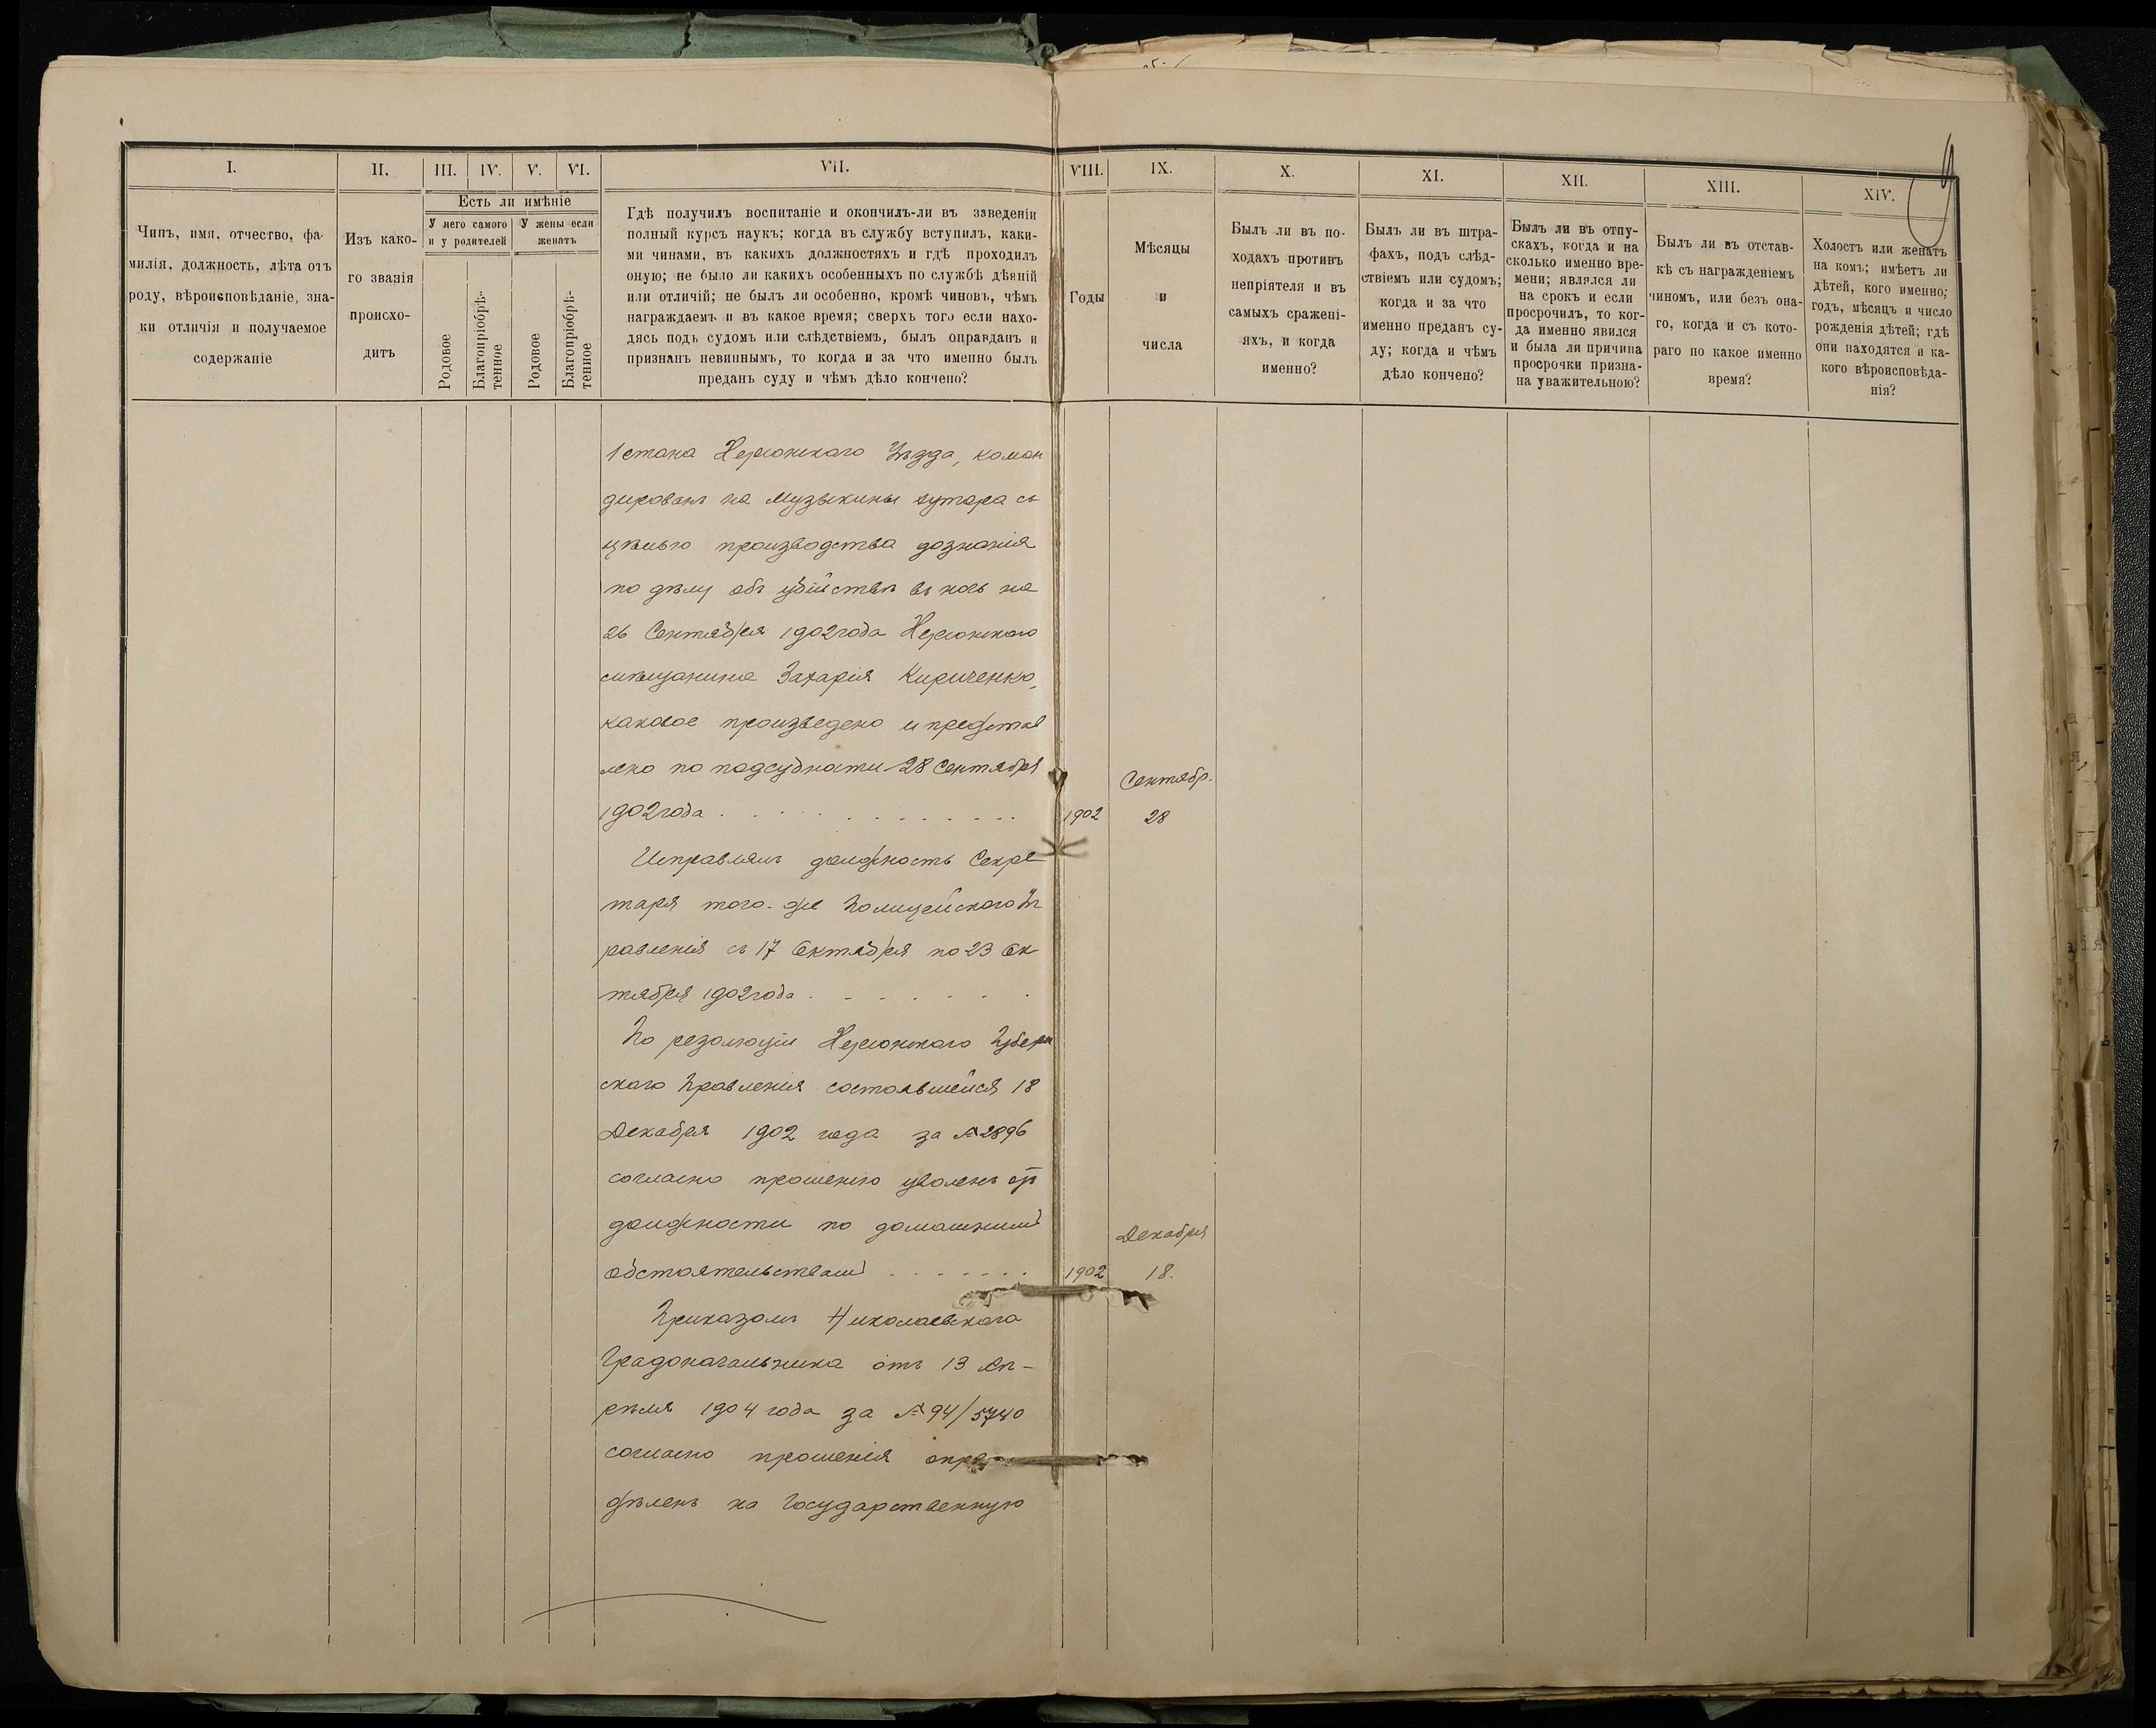 I.
II.
III.
IV.
V.
VI.
VII.
VIII.
IX.
X.
XI.
XII.
XIII.
XIV.
Чинъ, имя, отчество, фа-
милія, должность, лѣта отъ
роду, вѣроисповѣданіе, зна-
ки отличія и получаемое
содержаніе
Изъ како-
го званія
происхо-
дитъ
Есть ли имѣніе
У него самого
и у родителей
У жены если
женатъ
Родовое
Благопріобрѣ-
тенное
Родовое
Благопріобрѣ-
тенное
Гдѣ получилъ воспитаніе и окончилъ-ли въ заведеніи
полный курсъ наукъ; когда въ службу вступилъ, каки-
ми чинами, въ какихъ должностяхъ и гдѣ проходилъ
оную; не было ли какихъ особенныхъ по службѣ дѣяній
или отличій; не былъ ли особенно, кромѣ чиновъ, чѣмъ
награждаемъ и въ какое время; сверхъ того если нахо-
дясь подъ судомъ или слѣдствіемъ, былъ оправданъ и
признанъ невиннымъ, то когда и за что именно былъ
преданъ суду и чѣмъ дѣло кончено?
Годы
Мѣсяцы
и
числа
Былъ ли въ по-
ходахъ противъ
непріятеля и въ
самыхъ сражені-
яхъ, и когда
именно?
Былъ ли въ штра-
фахъ, подъ слѣд-
ствіемъ или судомъ;
когда и за что
именно преданъ су-
ду; когда и чѣмъ
дѣло кончено?
Былъ ли въ отпу-
скахъ, когда и на
сколько именно вре-
мени; являлся ли
на срокъ и если
просрочилъ, то ког-
да именно явился
и была ли причина
просрочки призна-
на уважительною?
Былъ ли въ отстав-
кѣ съ награжденіемъ
чиномъ, или безъ она-
го, когда и съ кото-
раго по какое именно
время?
Холостъ или женатъ
на комъ; имѣетъ ли
дѣтей, кого именно;
годъ, мѣсяцъ и число
рожденія дѣтей; гдѣ
они находятся и ка-
кого вѣроисповѣда-
нія?
1 стана Херсонскаго Уѣзда, коман
дированъ на Музыкины хутора съ
цѣлью производства дознанія
по дѣлу объ убійствѣ въ ночь на
26 Сентября 1902 года Херсонскаго
мѣщанина Захарія Кириченко,
каковое произведено и представ
лено по подсудности 28 Сентября
1902 года . . . . . . . . . . . .
Сентябр.
1902 28
Исправлялъ должность Секре
таря того-же Полицейскаго Уп
равленія съ 17 Октября по 23 Ок
тября 1902 года . . . . . . .
По резолюціи Херсонскаго Губерн
скаго Правленія состоявшейся 18
Декабря 1902 года за № 2896
согласно прошенію уволенъ отъ
должности по домашнимъ
обстоятельствамъ . . . . . . .
Декабря
1902 18.
Приказомъ Николаевскаго
Градоначальника отъ 13 Ап-
рѣля 1904 года за № 94/5740
согласно прошенія опре
дѣленъ на Государственную